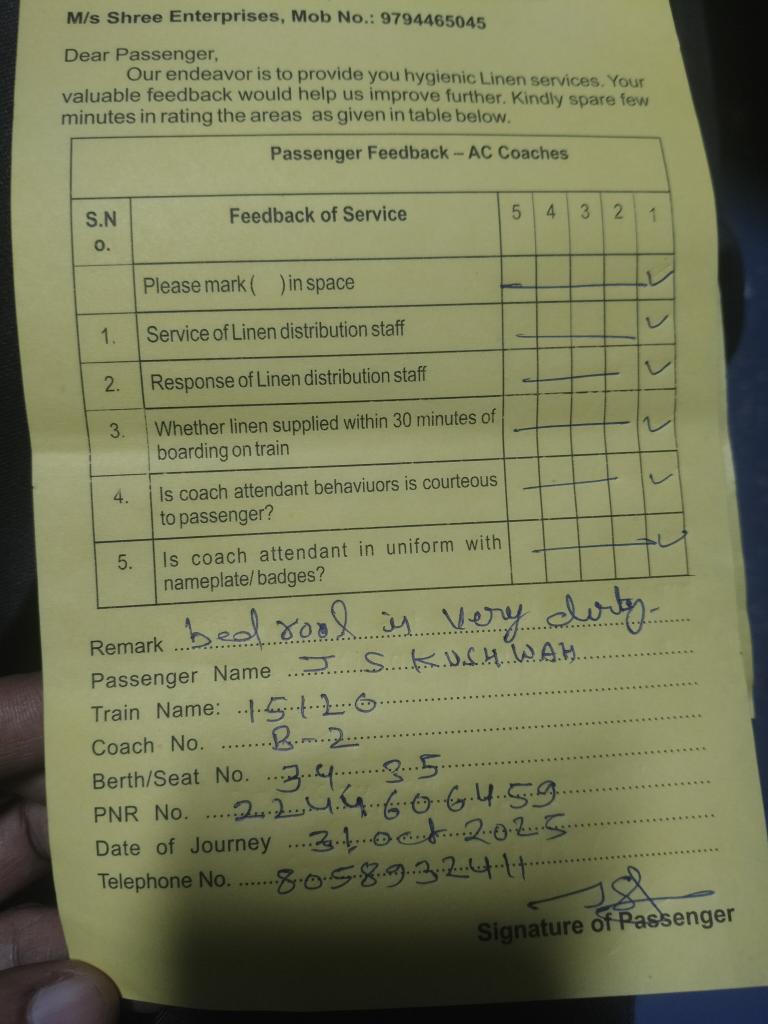 M/s Shree Enterprises, Mob No.: 9794465045
Dear Passenger,
Our endeavor is to provide you hygienic Linen services. Your
valuable feedback would help us improve further. Kindly spare few
minutes in rating the areas as given in table below.
Passenger Feedback – AC Coaches
S.N
o. Feedback of Service 5 4 3 2 1
Please mark ( ) in space ✓
1. Service of Linen distribution staff ✓
2. Response of Linen distribution staff ✓
3. Whether linen supplied within 30 minutes of
boarding on train ✓
4. Is coach attendant behaviuors is courteous
to passenger? ✓
5. Is coach attendant in uniform with
nameplate/ badges? ✓
Remark bed rool is very dirty.
Passenger Name J S KUSHWAH
Train Name: 15120
Coach No. B-2
Berth/Seat No. 34 35
PNR No. 2244606459
Date of Journey 31 oct 2025
Telephone No. 8058932411
Signature of Passenger